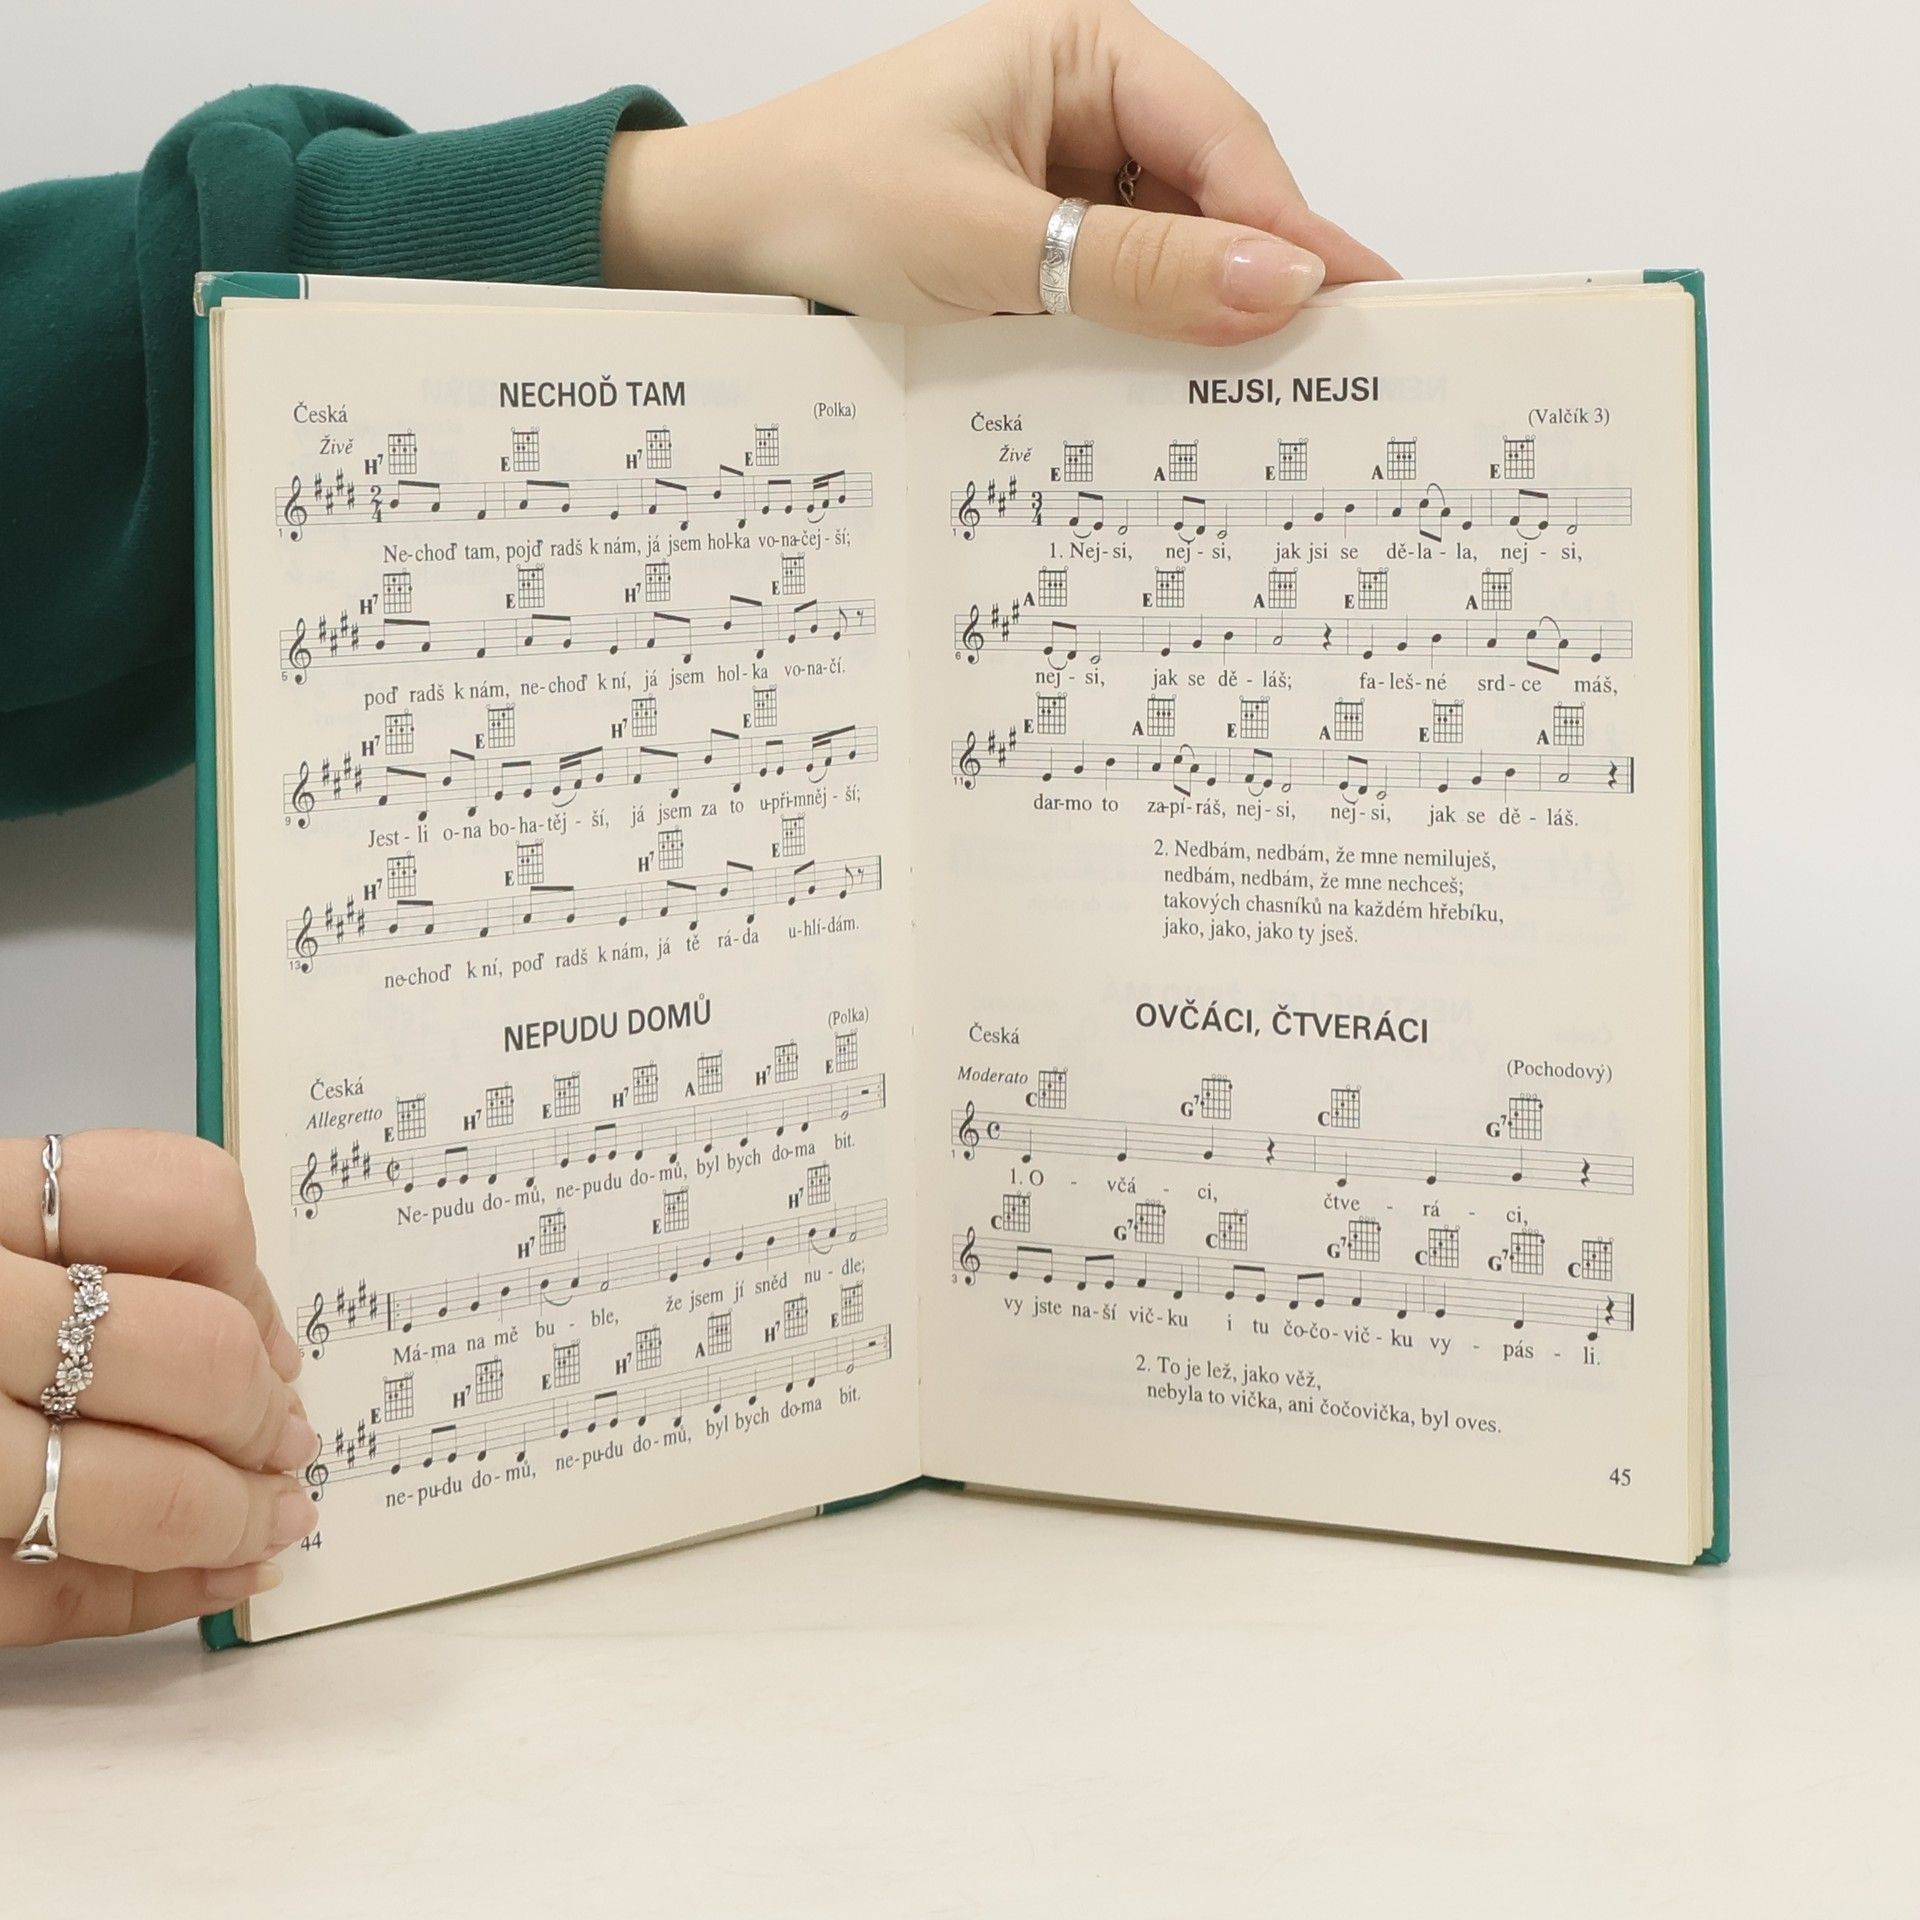 NECHOĎ TAM
Česká
(Polka)
Živě
H7 E H7 E
2
4
1
Ne-choď tam, pojď radš k nám, já jsem hol-ka vo-na-čej-ší;
H7 E H7 E
5
poď radš k nám, ne-choď k ní, já jsem hol-ka vo-na-čí.
H7 E H7 E
9
Jest-li o-na bo-ha-těj-ší, já jsem za to u-při-mněj-ší;
H7 E H7 E
13
ne-choď k ní, poď radš k nám, já tě rá-da u-hlí-dám.
NEPUDU DOMŮ
(Polka)
Česká
Allegretto
E H7 E H7 A H7 E
1
Ne-pudu do-mů, ne-pudu do-mů, byl bych do-ma bit.
H7 E H7
5
Má-ma na mě bu - ble, že jsem jí sněd nu - dle;
E H7 E H7 A H7 E
ne-pu-du do-mů, ne-pu-du do-mů, byl bych do-ma bit.
44
NEJSI, NEJSI
Česká
(Valčík 3)
Živě
E A E A E
3
4
1
1. Nej-si, nej-si, jak jsi se dě-la-la, nej-si,
A E A E A
6
nej-si, jak se dě-láš; fa-leš-né srd-ce máš,
E A E A E A
11
dar-mo to za-pí-ráš, nej-si, nej-si, jak se dě-láš.
2. Nedbám, nedbám, že mne nemiluješ,
nedbám, nedbám, že mne nechceš;
takových chasníků na každém hřebíku,
jako, jako, jako ty jseš.
OVČÁCI, ČTVERÁCI
Česká
(Pochodový)
Moderato
C G7 C G7
1
1. O - včá - ci, čtve - rá - ci,
C G7 C G7 C G7 C
3
vy jste na-ší vič-ku i tu čo-čo-vič-ku vy - pás - li.
2. To je lež, jako věž,
nebyla to vička, ani čočovička, byl oves.
45